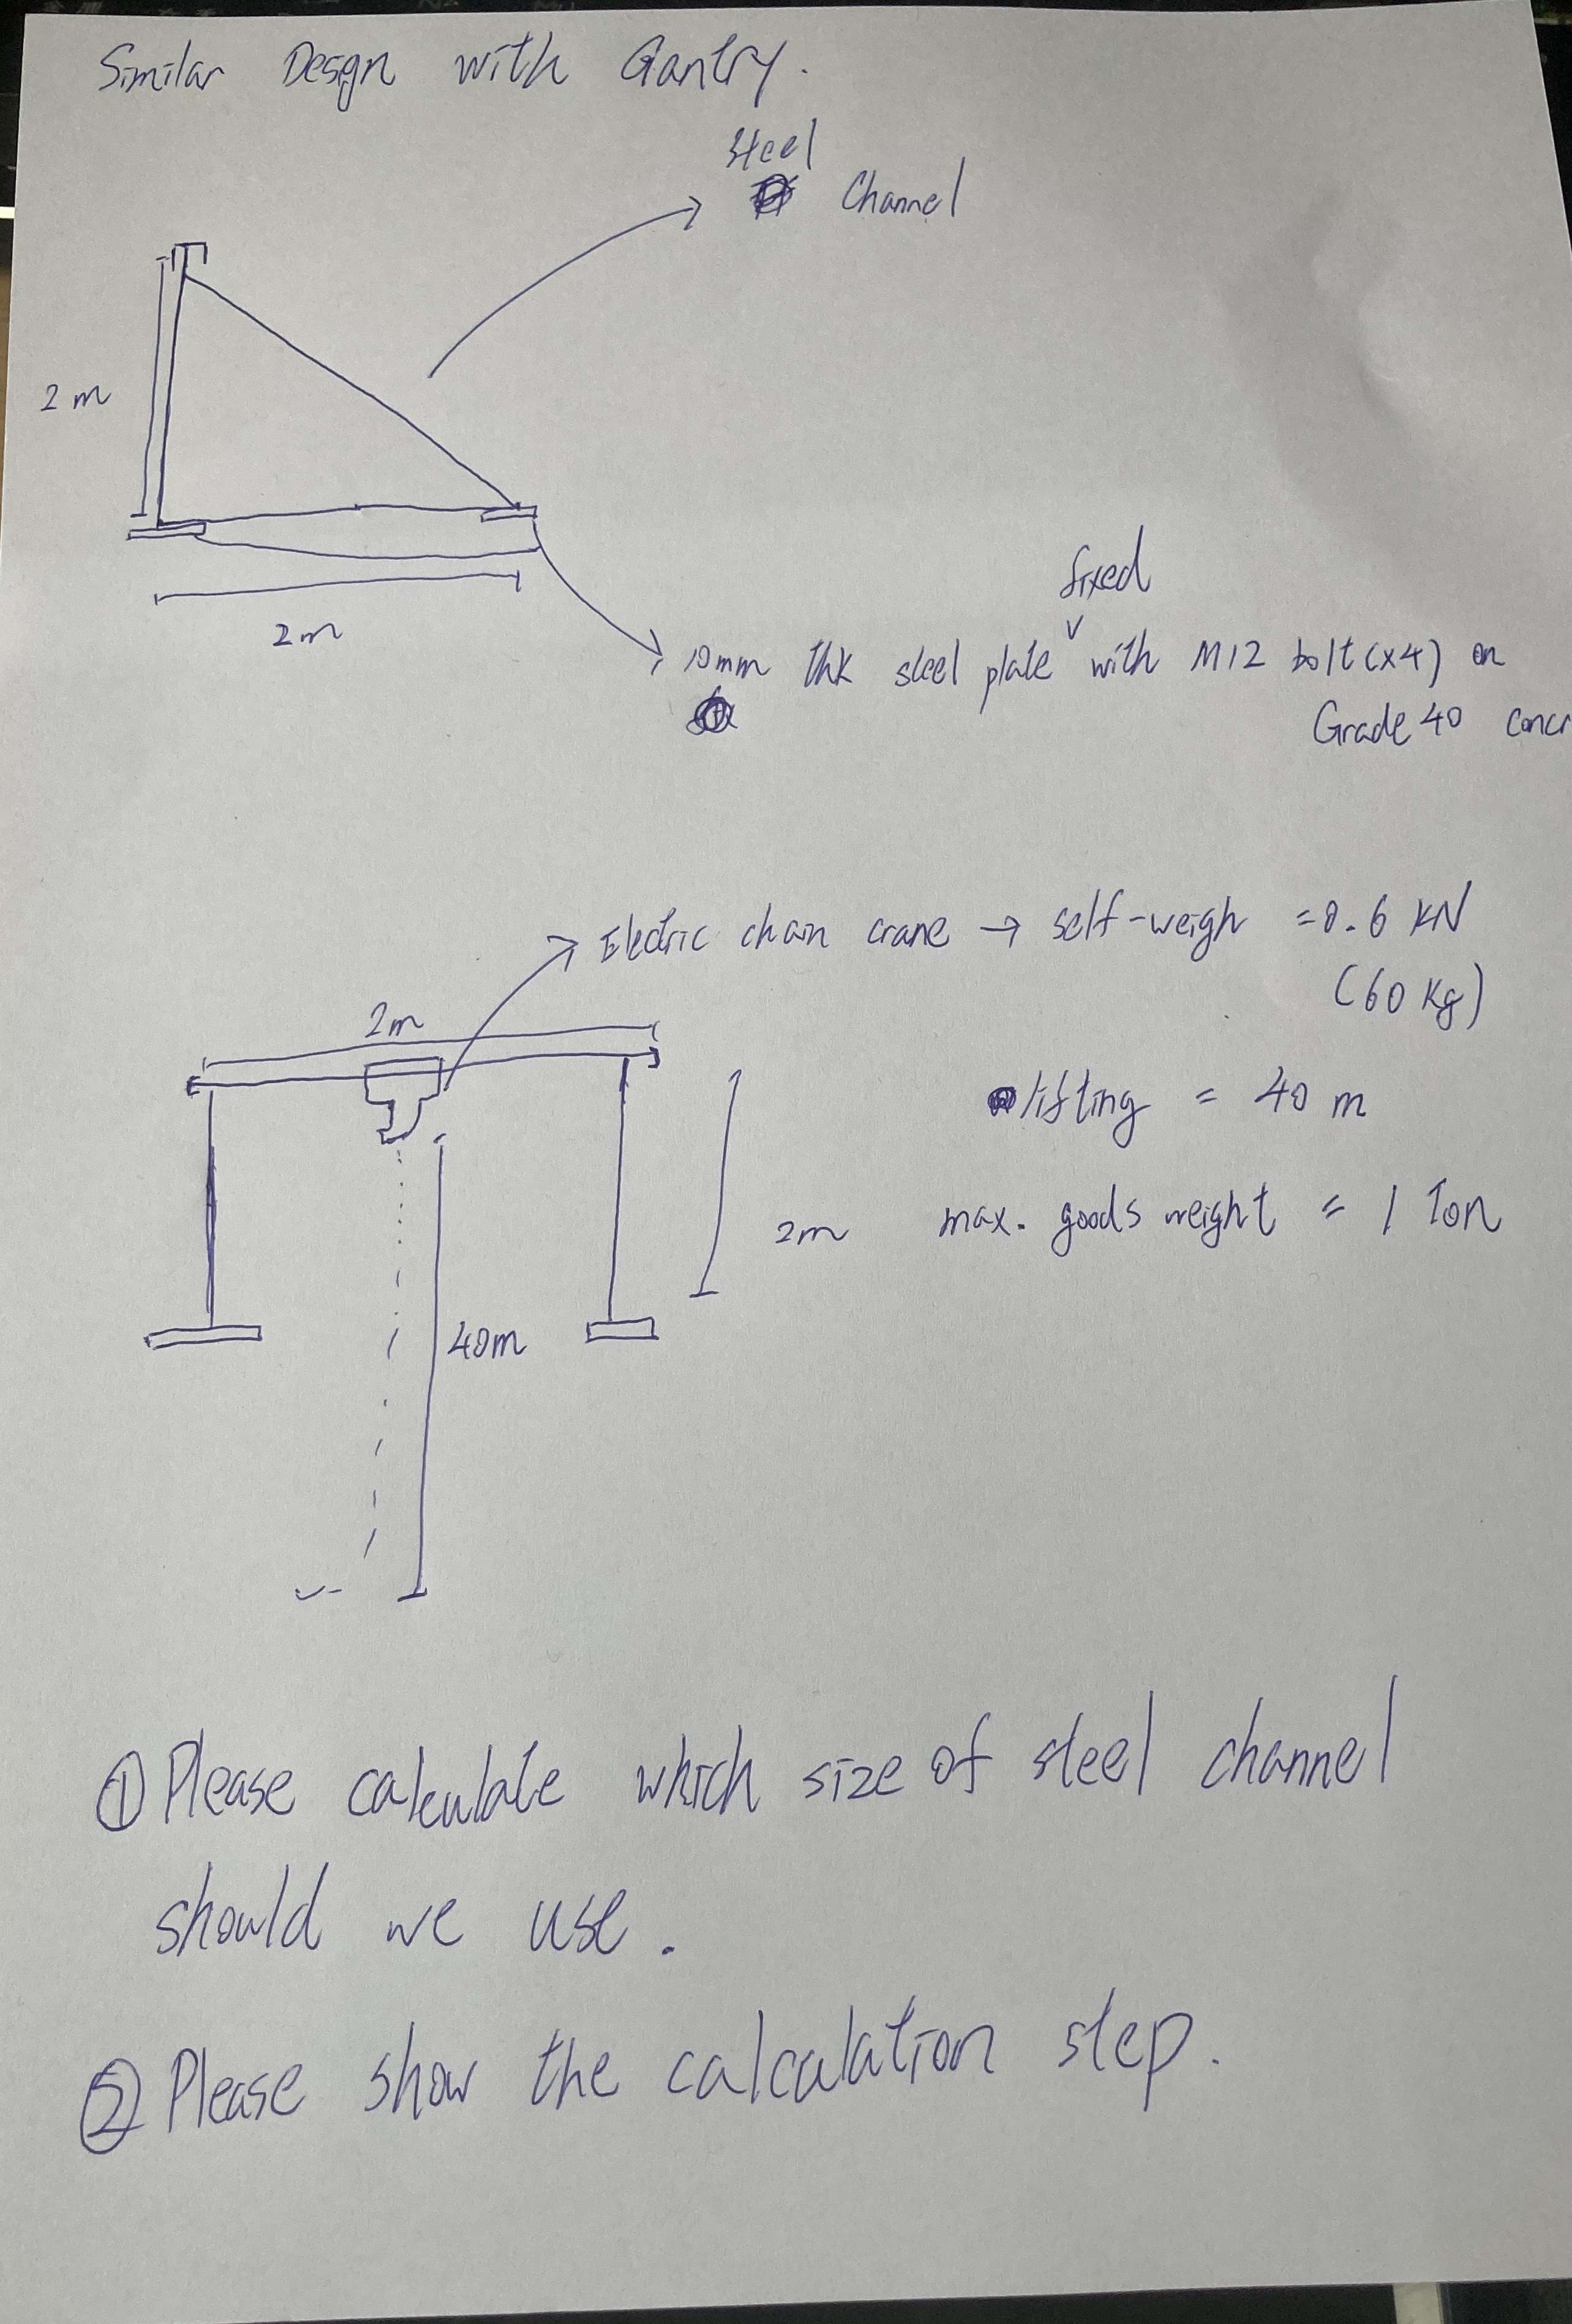 Similar Design with Gantry.
Steel
Channel
2 m
2m
fixed
10mm thk steel plate ᵛ with M12 bolt (x4) on
Grade 40 concr
Electric chain crane → self-weigh = 0.6 KN
(60 kg)
2m
lifting = 40 m
2m
max. goods weight = 1 Ton
40m
① Please calculate which size of steel channel
should we use.
② Please show the calculation step.